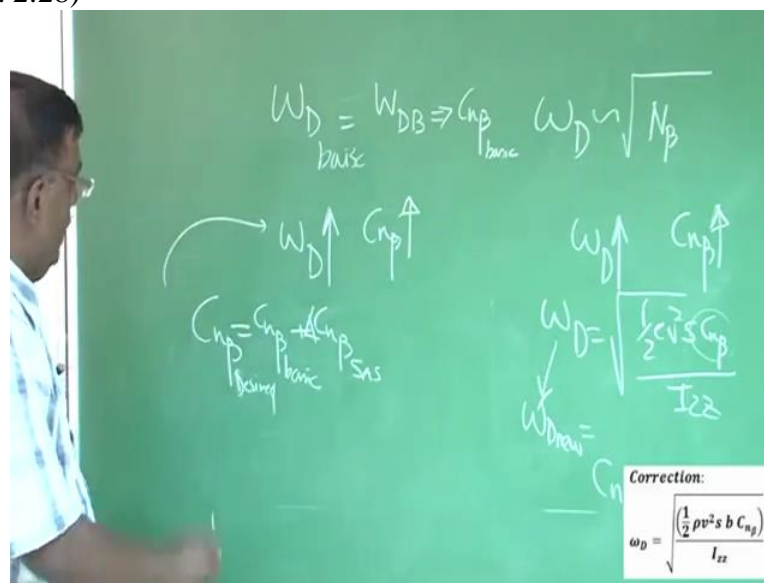 2.28)
ω_D baisc = ω_DB ⇒ C_nβ basic ω_D ~ √N_β
ω_D ↑ C_nβ ↑ ω_D ↑ C_nβ ↑
C_nβ Desired = C_nβ basic + ΔC_nβ SAS
ω_D = √(½ρv²s C_nβ / Izz)
ω_Dnew =
C_n
Correction:
ω_D = √((½ ρv²s b C_nβ) / I_zz)